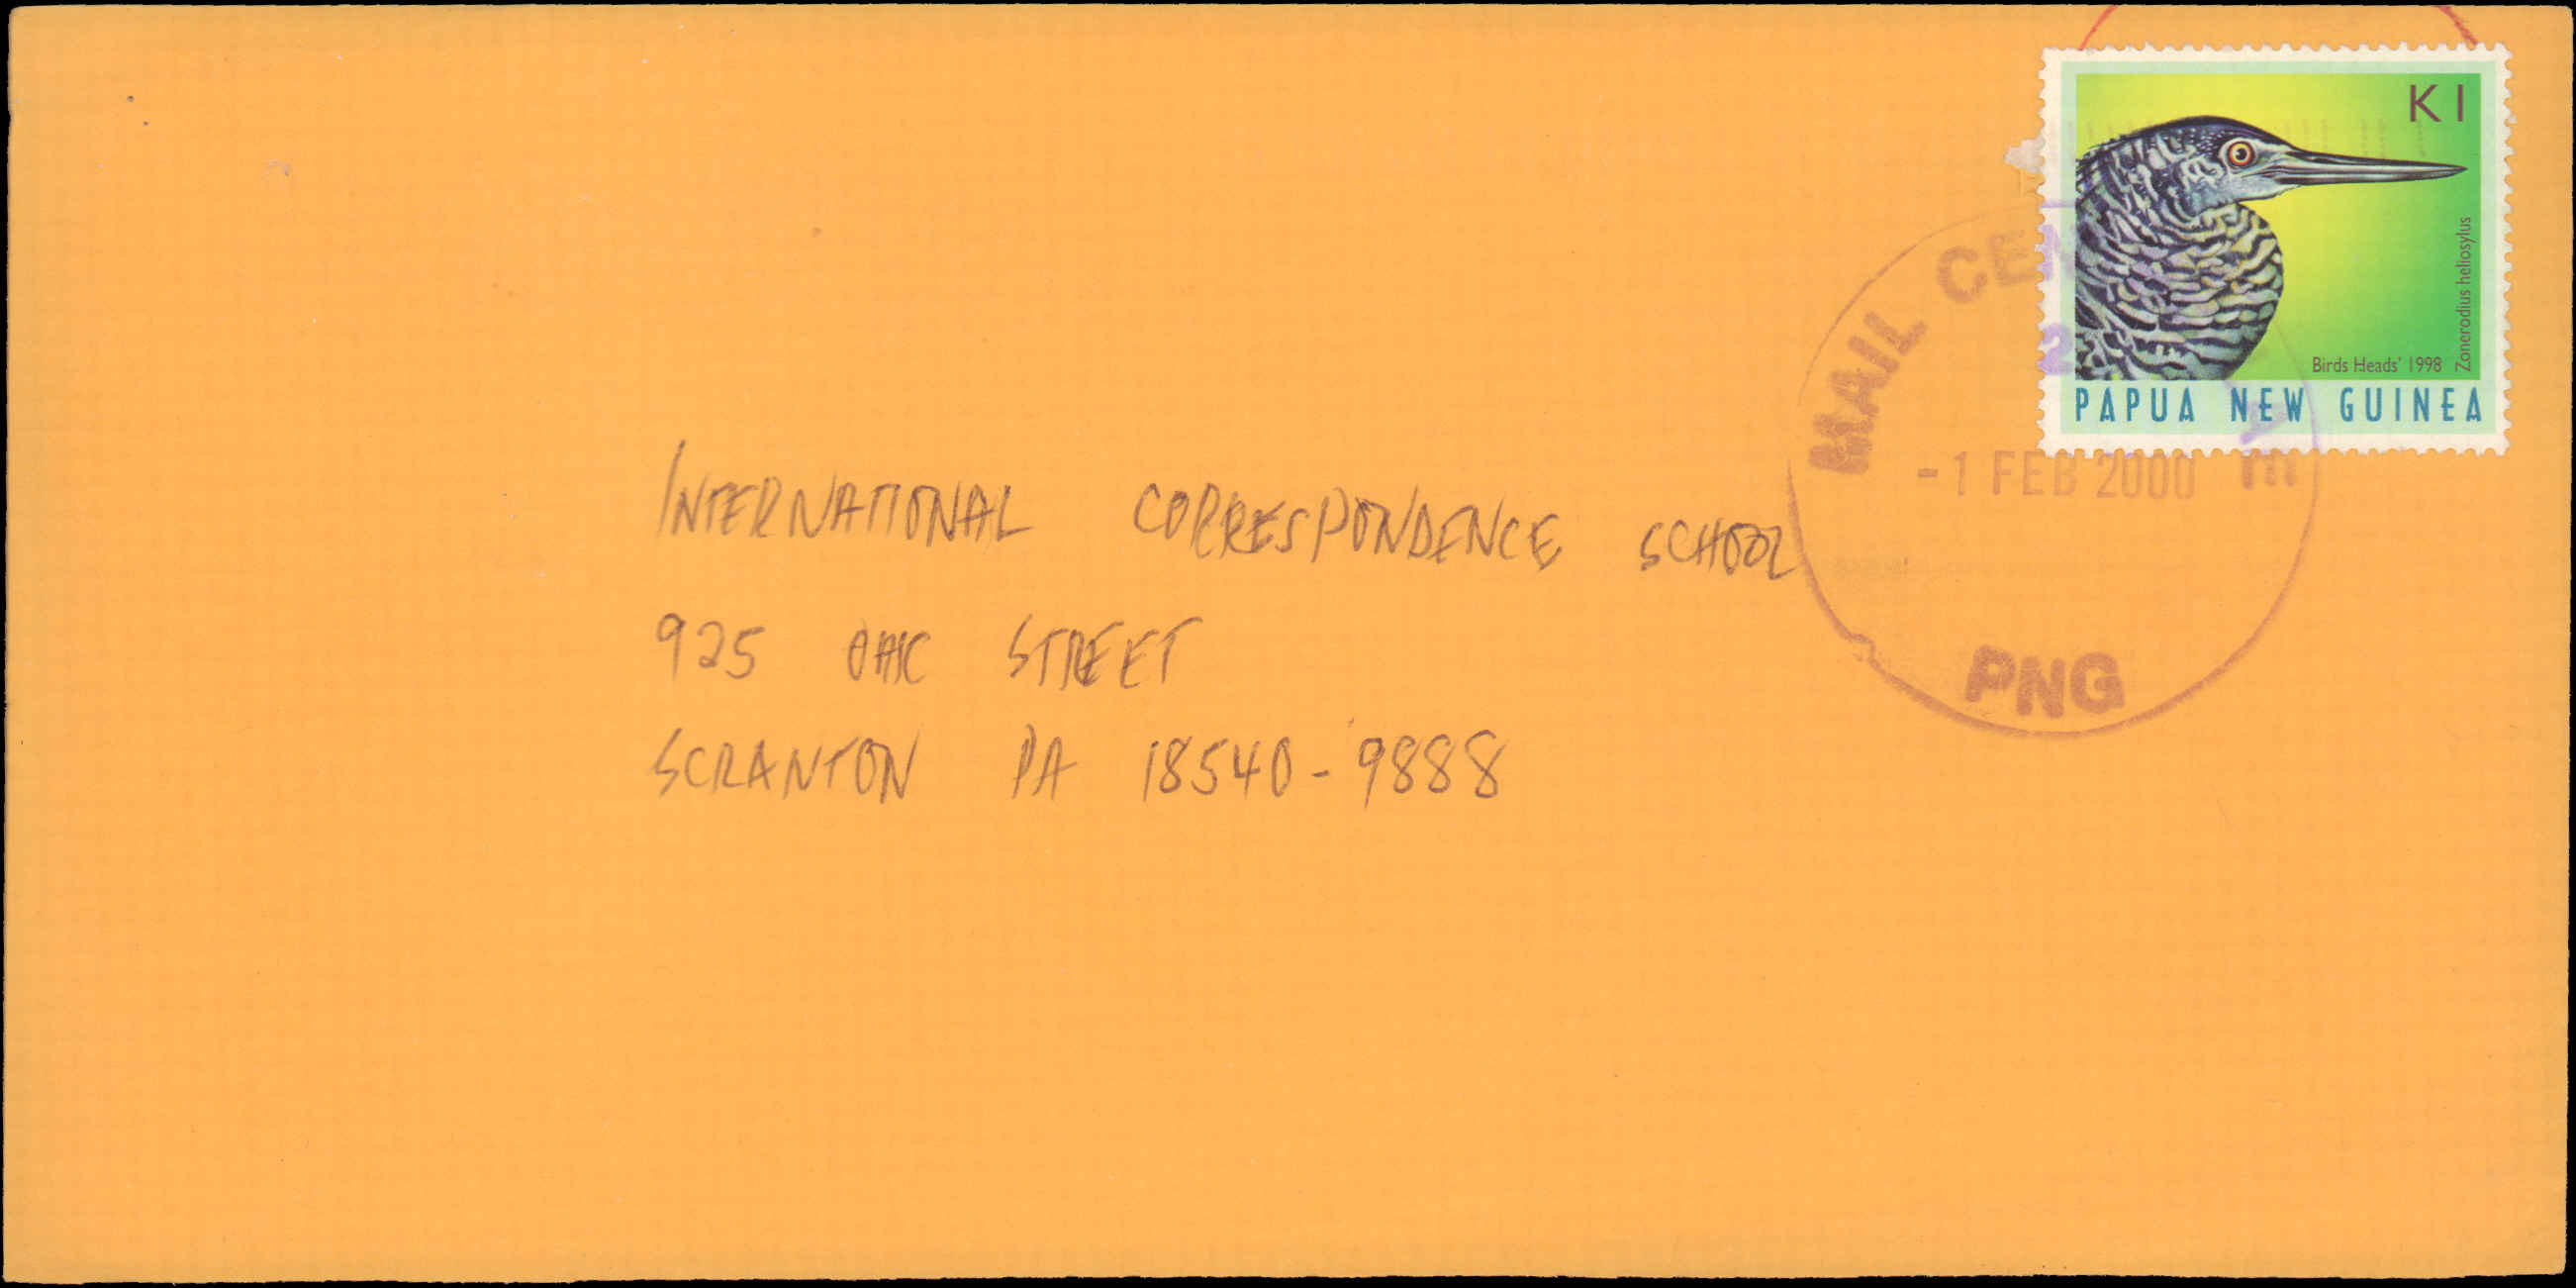 K1
Zonerodius heliosylus
Birds Heads' 1998
PAPUA NEW GUINEA
MAIL CEN
2
-1 FEB 2000
PNG
INTERNATIONAL CORRESPONDENCE SCHOOL
925 OAK STREET
SCRANTON PA 18540-9888